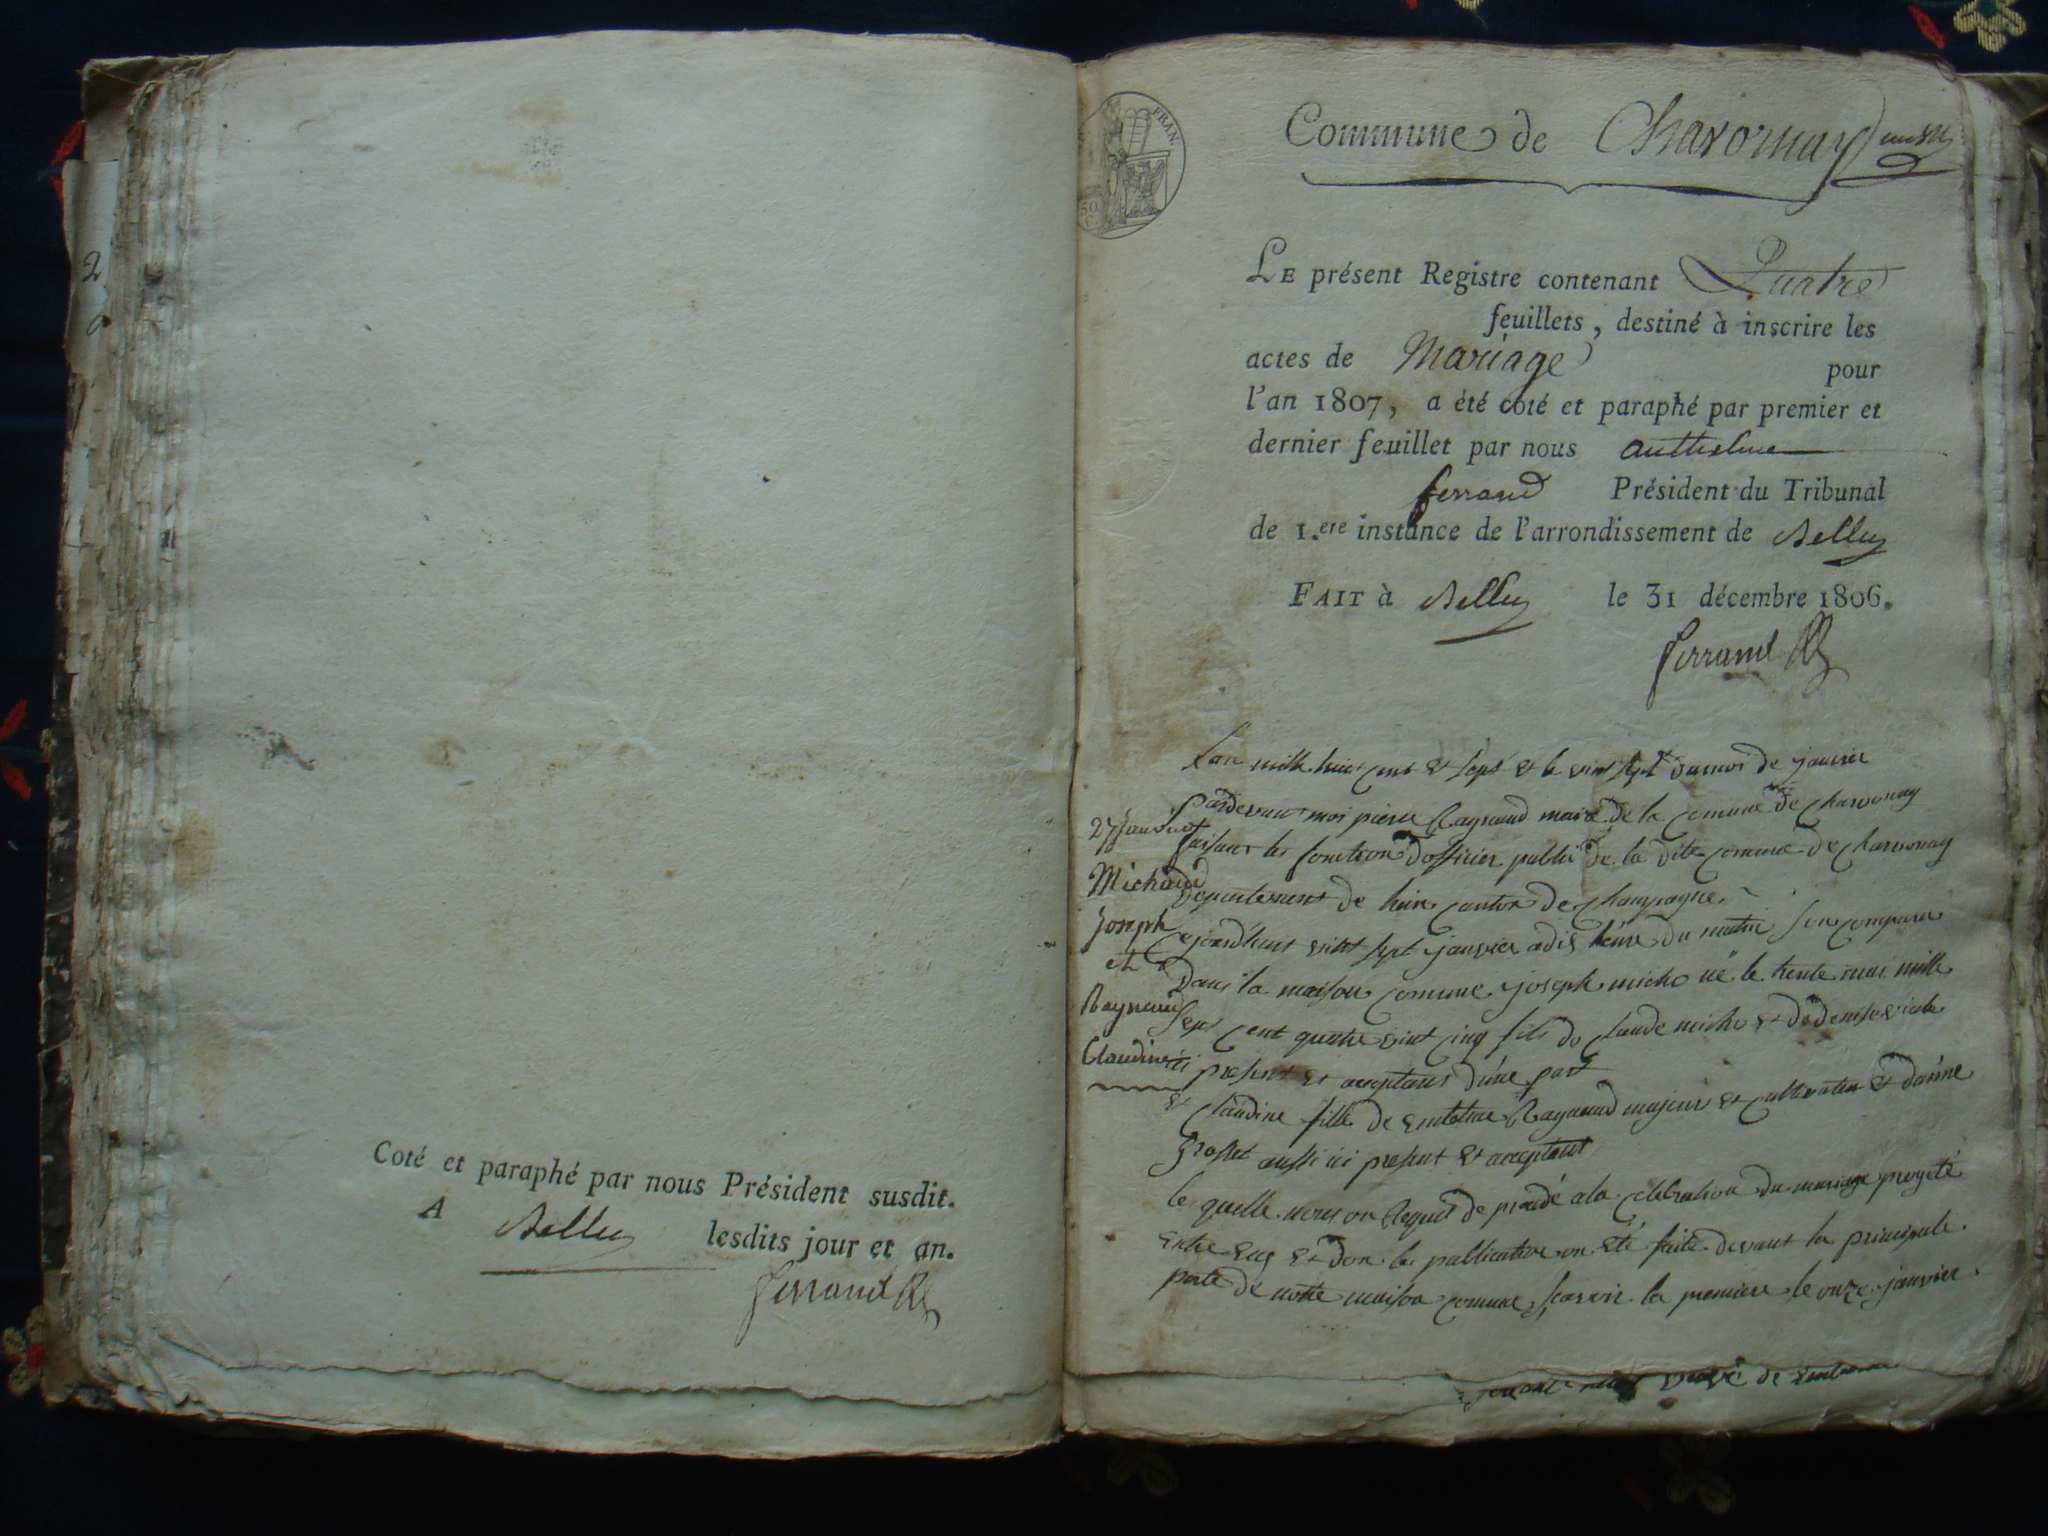 2
Coté et paraphé par nous Président susdit.
A Belley lesdits jour et an.
Ferrand
FRAN.
50
Commune de Chavornay
LE présent Registre contenant Quatre
feuillets, destiné à inscrire les
actes de Mariage pour
l'an 1807, a été coté et paraphé par premier et
dernier feuillet par nous anthelme
ferrand Président du Tribunal
de 1.ere instance de l'arrondissement de Belley
FAIT à Belley le 31 décembre 1806.
Ferrand
L'an mille huit cent et sept et le vint sept du mois de janvier
pardevant moi pierre Raynaud maire de la comune de Chavornay
faisant les fonction d'officier public de la dite comune de Chavornay
departement de lain canton de Champagne
27 Janvier
Michaud
Joseph
et
Raynaud
Claudine
cejourdhuit vint sept janvier a dis heure du matin son comparu
dans la maison comune joseph micho né le trente mai mille
sept cent quatre vint cinq fils de claude micho et de denise
ici present et acceptant d'une part
et claudine fille de entelme Raynaud majeur et cultivateur et danne
grosset aussi ici present et acceptant
le quelle nous on requis de procédé a la celebration du mariage projeté
entre eux et don les publication on été faite devant la principale
porte de notre maison comune, scavoir la premiere le onze janvier